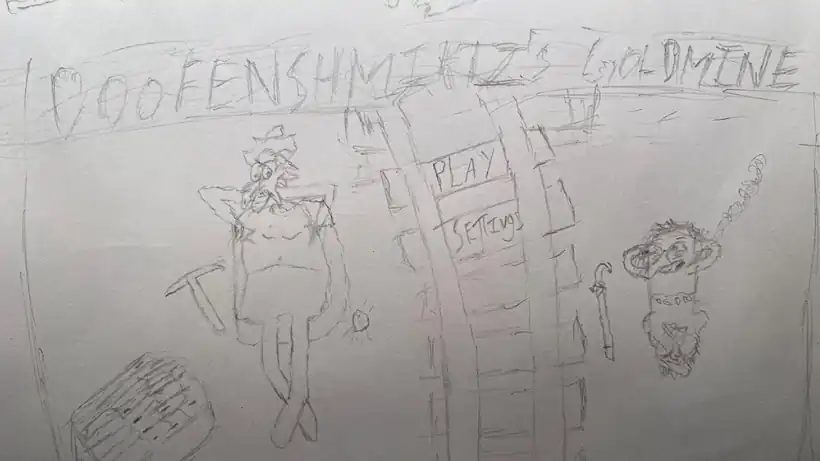 DOOFENSHMIRTZ's GOLDMINE
PLAY
SETTINGS